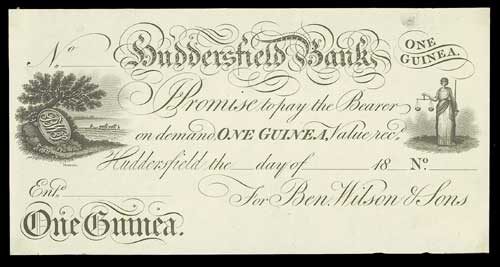 No. Huddersfield Bank,
ONE GUINEA.
I Promise to pay the Bearer
on demand, ONE GUINEA, Value rec.d
Huddersfield the day of 18 No.
Ent.d For Ben. Wilson & Sons
One Guinea.